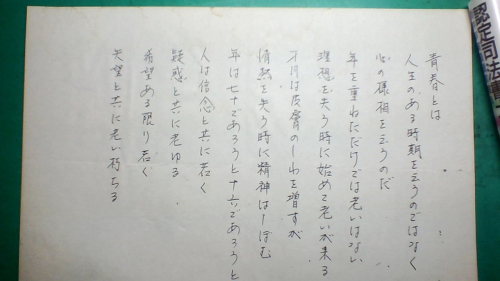 青春とは
人生のある時期を言うのではなく
心の様相を言うのだ
年を重ねただけでは老いはない
理想を失う時に始めて老いが来る
才月は皮膚のしわを増すが
情熱を失う時に精神はしぼむ
年は七十であろうと十六であろうと
人は信念と共に若く
疑惑と共に老ゆる
希望ある限り若く
失望と共に老い朽ちる
認定司法書